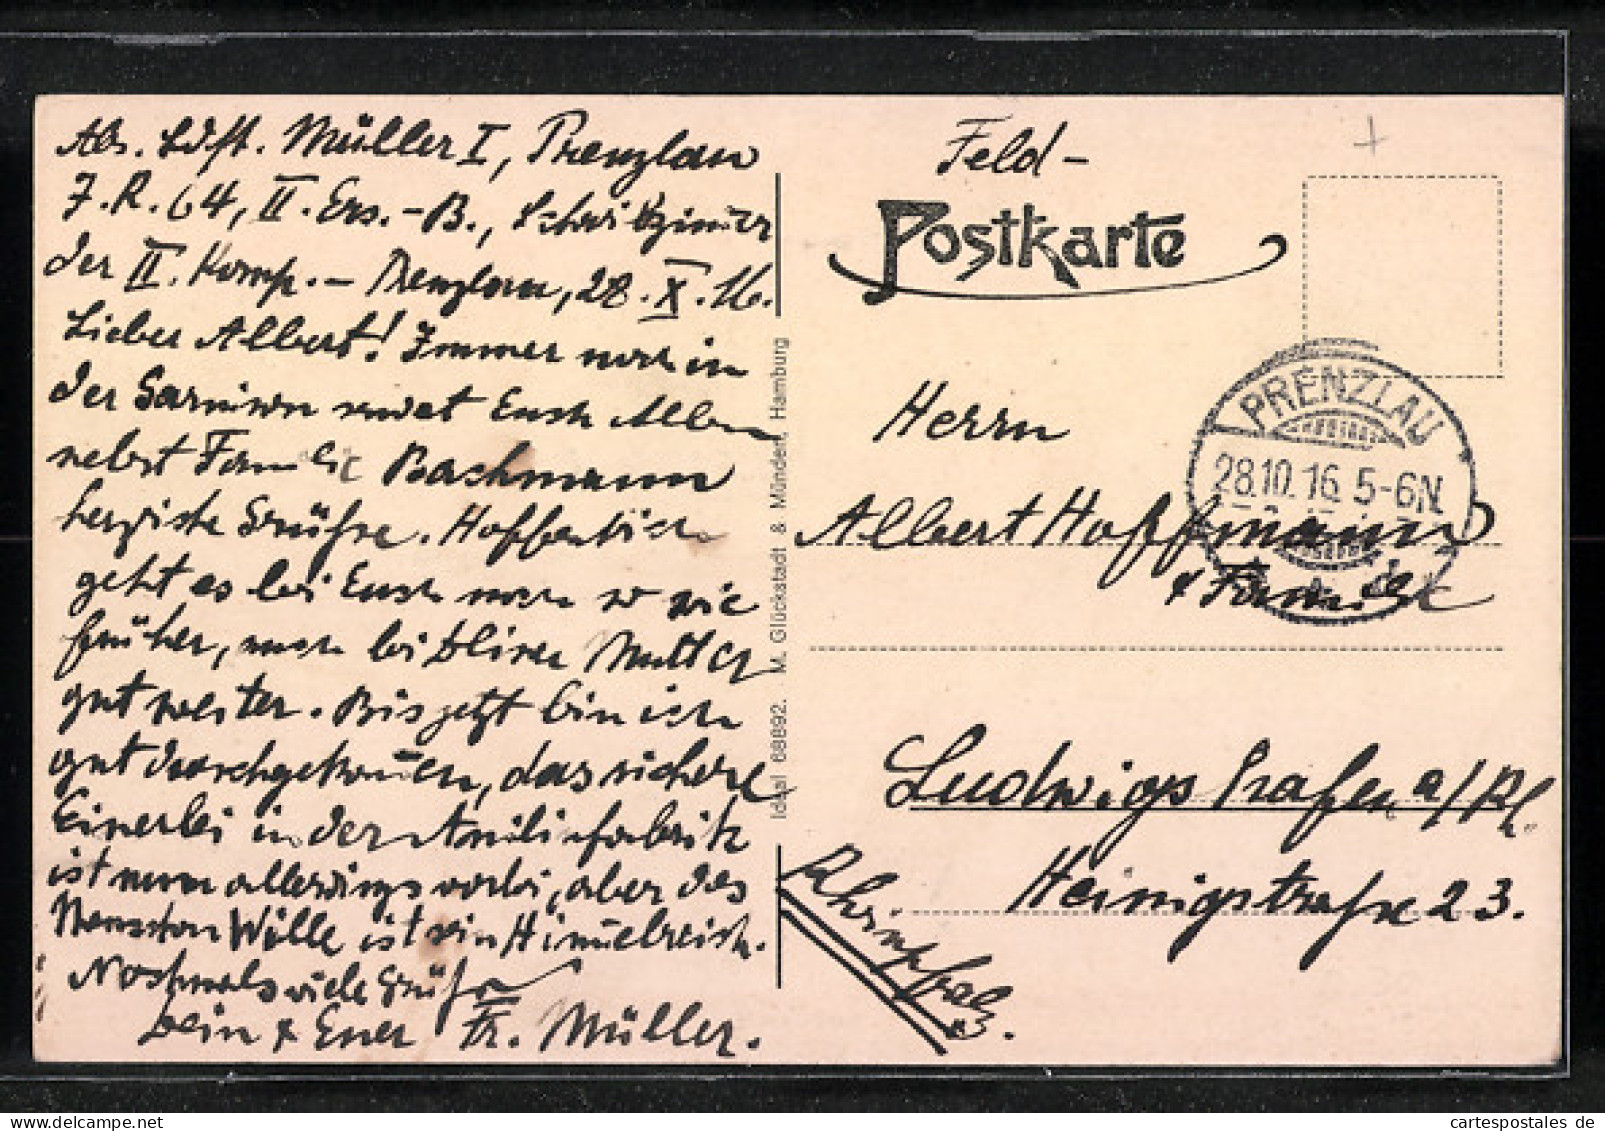 Abs. Ldst. Müller I, Prenzlau
J.R. 64, II. Ers.-B.,
der II. Komp. - Prenzlau, 28.X.16.
Lieber Albert! Immer noch in
der Garnison sendet Euch Allen
nebst Familie Bachmann
herzliche Grüße. Hoffentlich
geht es bei Euch noch so wie
früher, auch bei Deiner Mutter
gut weiter. Bis jetzt bin ich
gut durchgekommen, das sichere
Einerlei in der Anilinfabrik
ist nun allerdings vorbei, aber des
Menschen Wille ist sein Himmelreich.
Nochmals viele Grüße
Dein & Euer Fr. Müller.
Ideal 68892. M. Glückstadt & Münden, Hamburg
Feld-
Postkarte
+
PRENZLAU
28.10.16. 5-6N
Herrn
Albert Hoffmann
& Familie
Ludwigshafen a/Rh.
Heinigstraße 23.
Rheinpfalz.
cartespostales.de